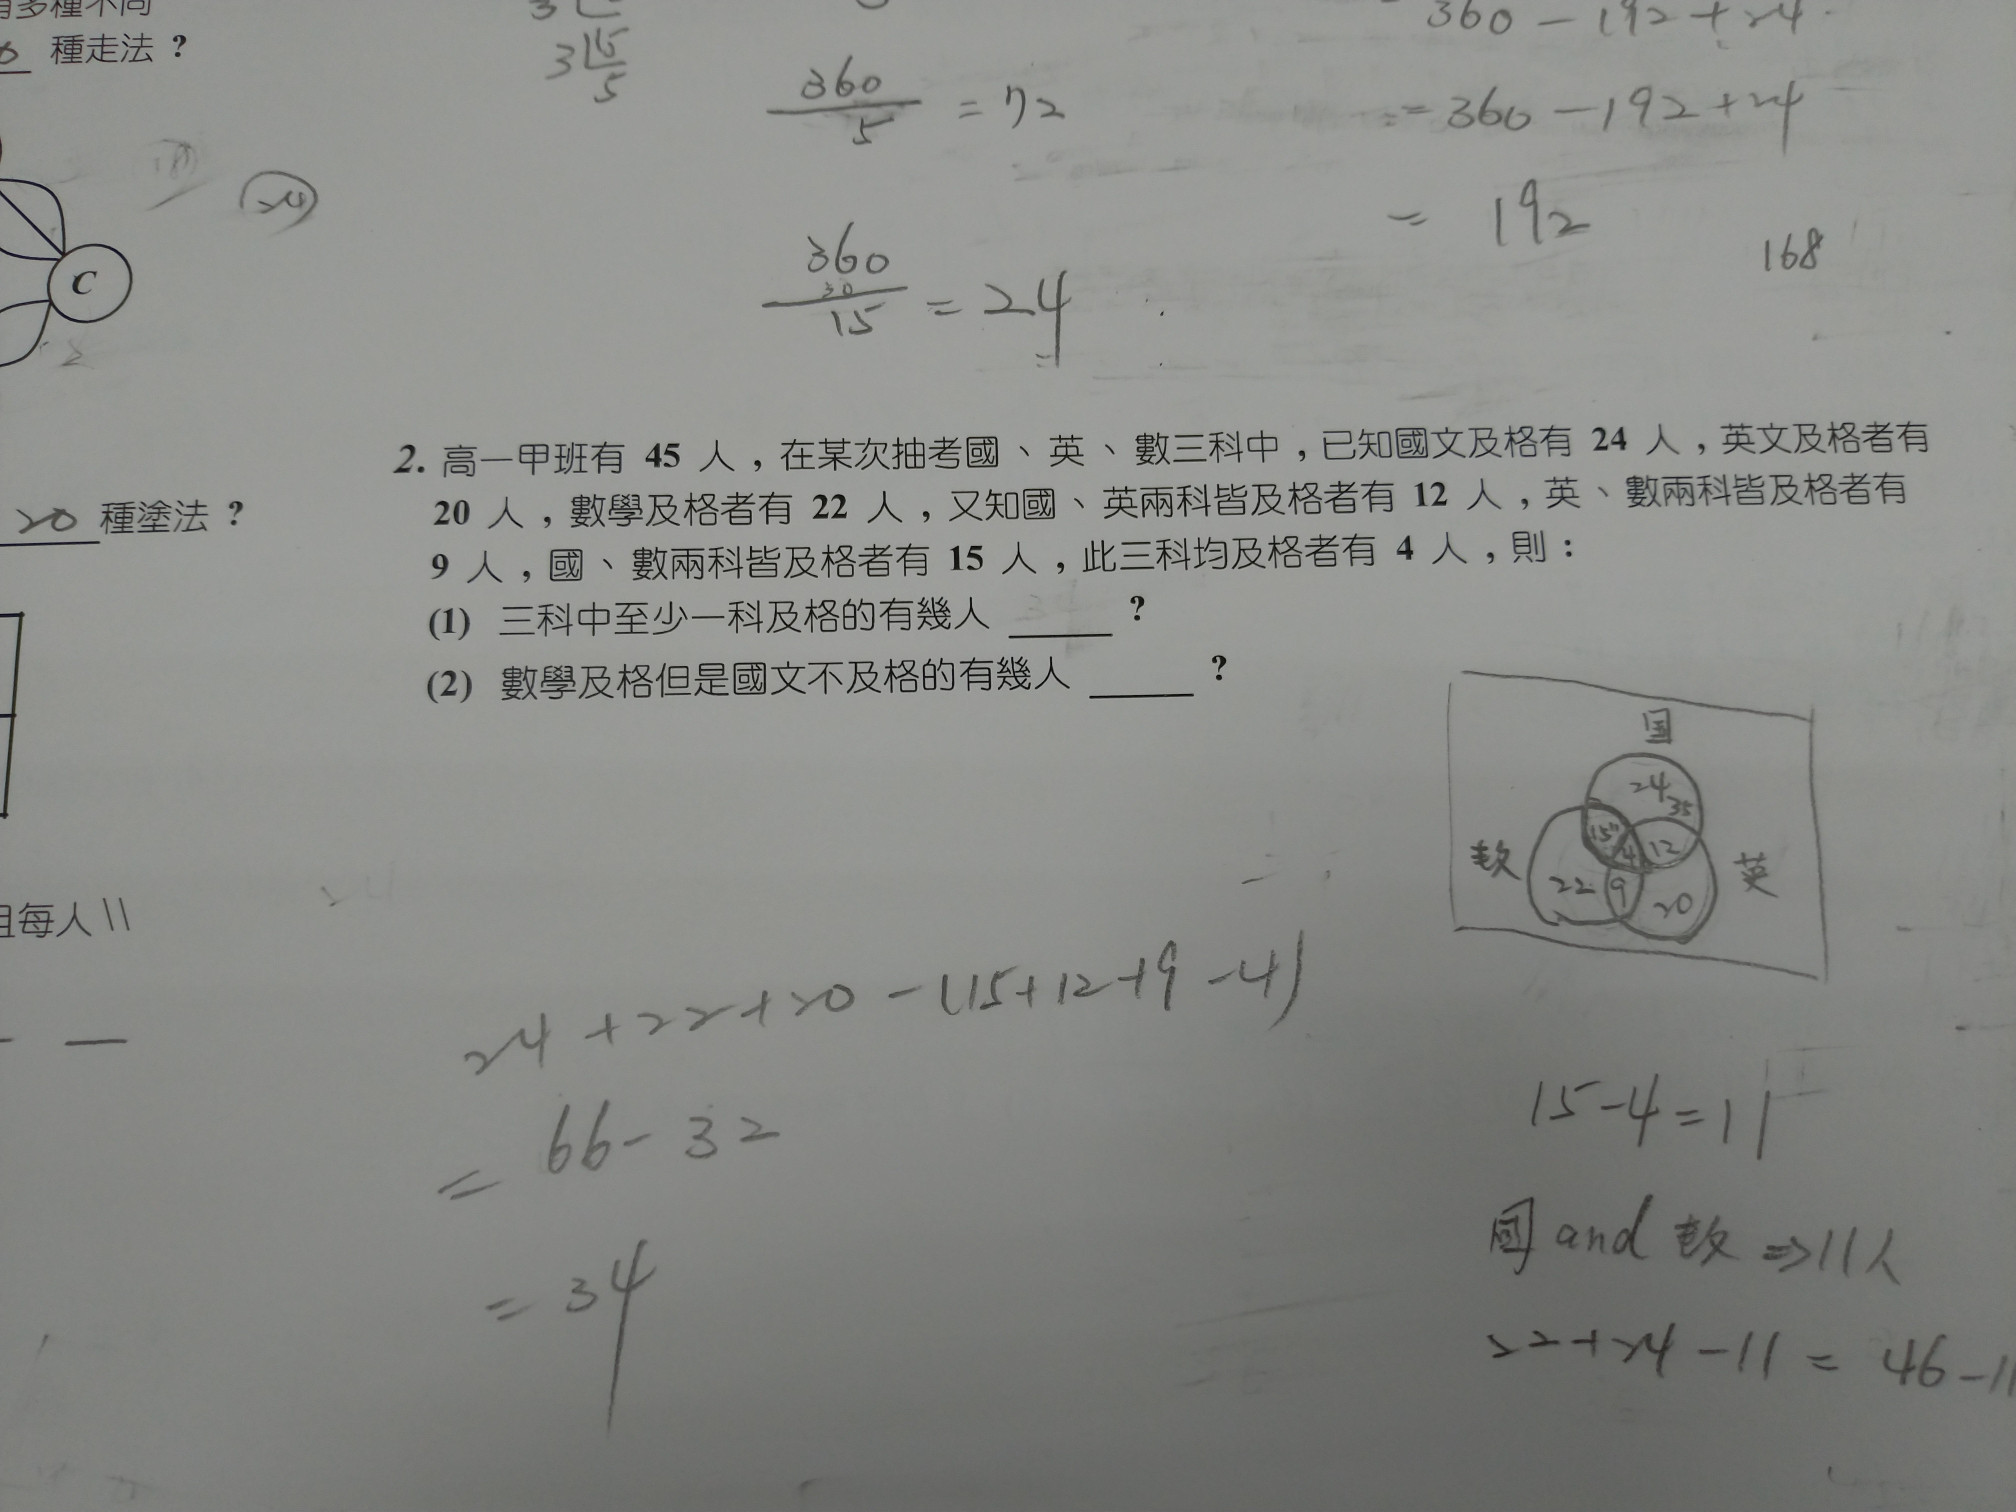 有多種不同
種走法？
3 15
5
360/5 = 72
360 - 192 + 24
= 360 - 192 + 24
= 192
168
24
C
360/15 = 24
30
2. 高一甲班有 45 人，在某次抽考國、英、數三科中，已知國文及格有 24 人，英文及格者有
20 人，數學及格者有 22 人，又知國、英兩科皆及格者有 12 人，英、數兩科皆及格者有
9 人，國、數兩科皆及格者有 15 人，此三科均及格者有 4 人，則：
(1) 三科中至少一科及格的有幾人 34 ？
(2) 數學及格但是國文不及格的有幾人 ？
20 種塗法？
国
24 35
15 4 12
数 22 9 20 英
且每人 \\
24 + 22 + 20 - (15 + 12 + 9 - 4)
= 66 - 32
= 34
15 - 4 = 11
國 and 数 => 11人
22 + 24 - 11 = 46 - 11